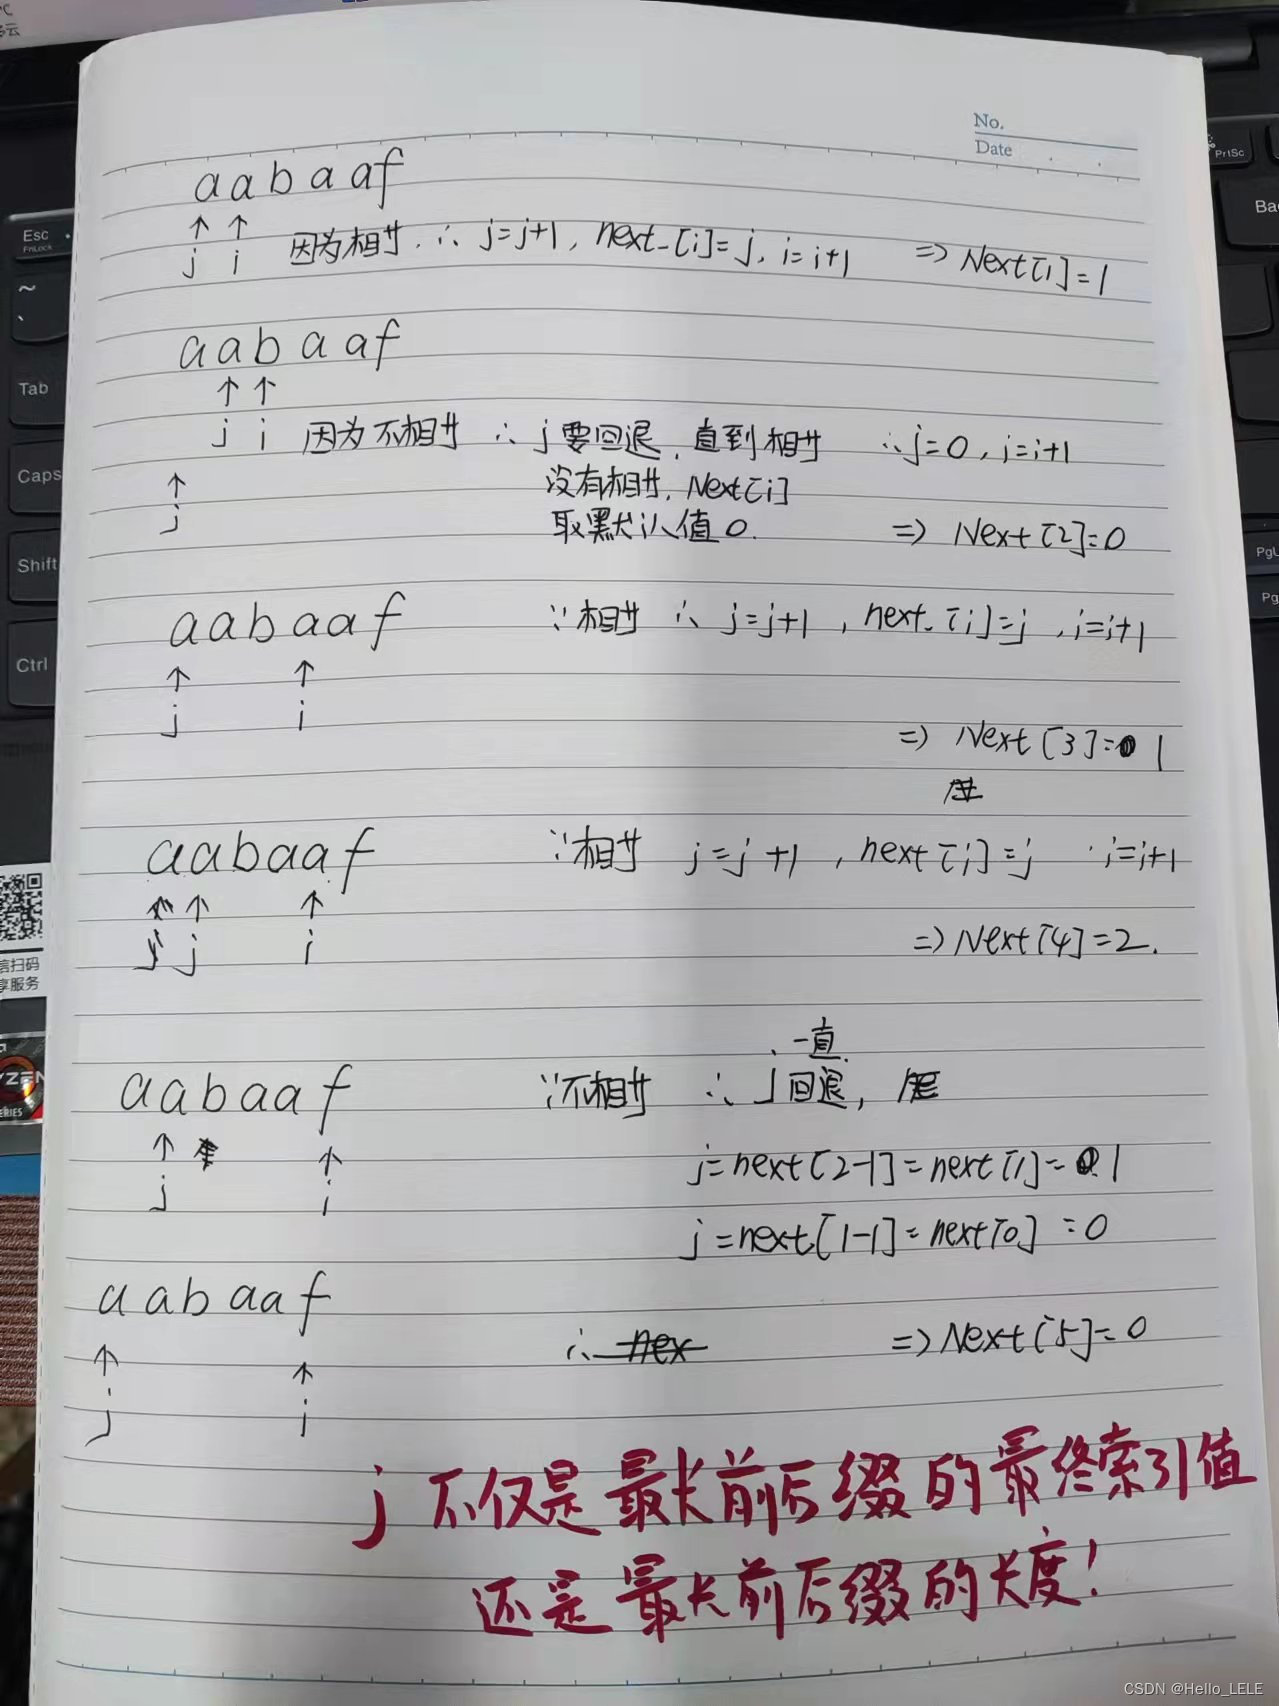 No.
Date
a a b a a f
j i 因为相等 ∴ j=j+1, next_[i]=j, i=i+1 => Next[1]=1
a a b a a f
j i 因为不相等 ∴ j要回退, 直到相等 ∴j=0, i=i+1
没有相等, Next[i]
j
取默认值0. => Next[2]=0
a a b a a f ∵相等 ∴ j=j+1, next_[i]=j, i=i+1
j i
=> Next[3]=1
a a b a a f ∵相等 j=j+1, next[i]=j i=i+1
j i => Next[4]=2.
一直
a a b a a f ∵不相等 ∴ j回退,
j i j=next[2-1]=next[1]=1
j=next[1-1]=next[0]=0
a a b a a f
∴ nex => Next[5]=0
j i
j不仅是最长前后缀的最终索引值
还是最长前后缀的长度!
Esc
FnLock
~
、
Tab
Caps
Shift
Ctrl
PrtSc
Ba
PgU
Pg
信扫码
享服务
YZEN
ERIES
CSDN @Hello_LELE